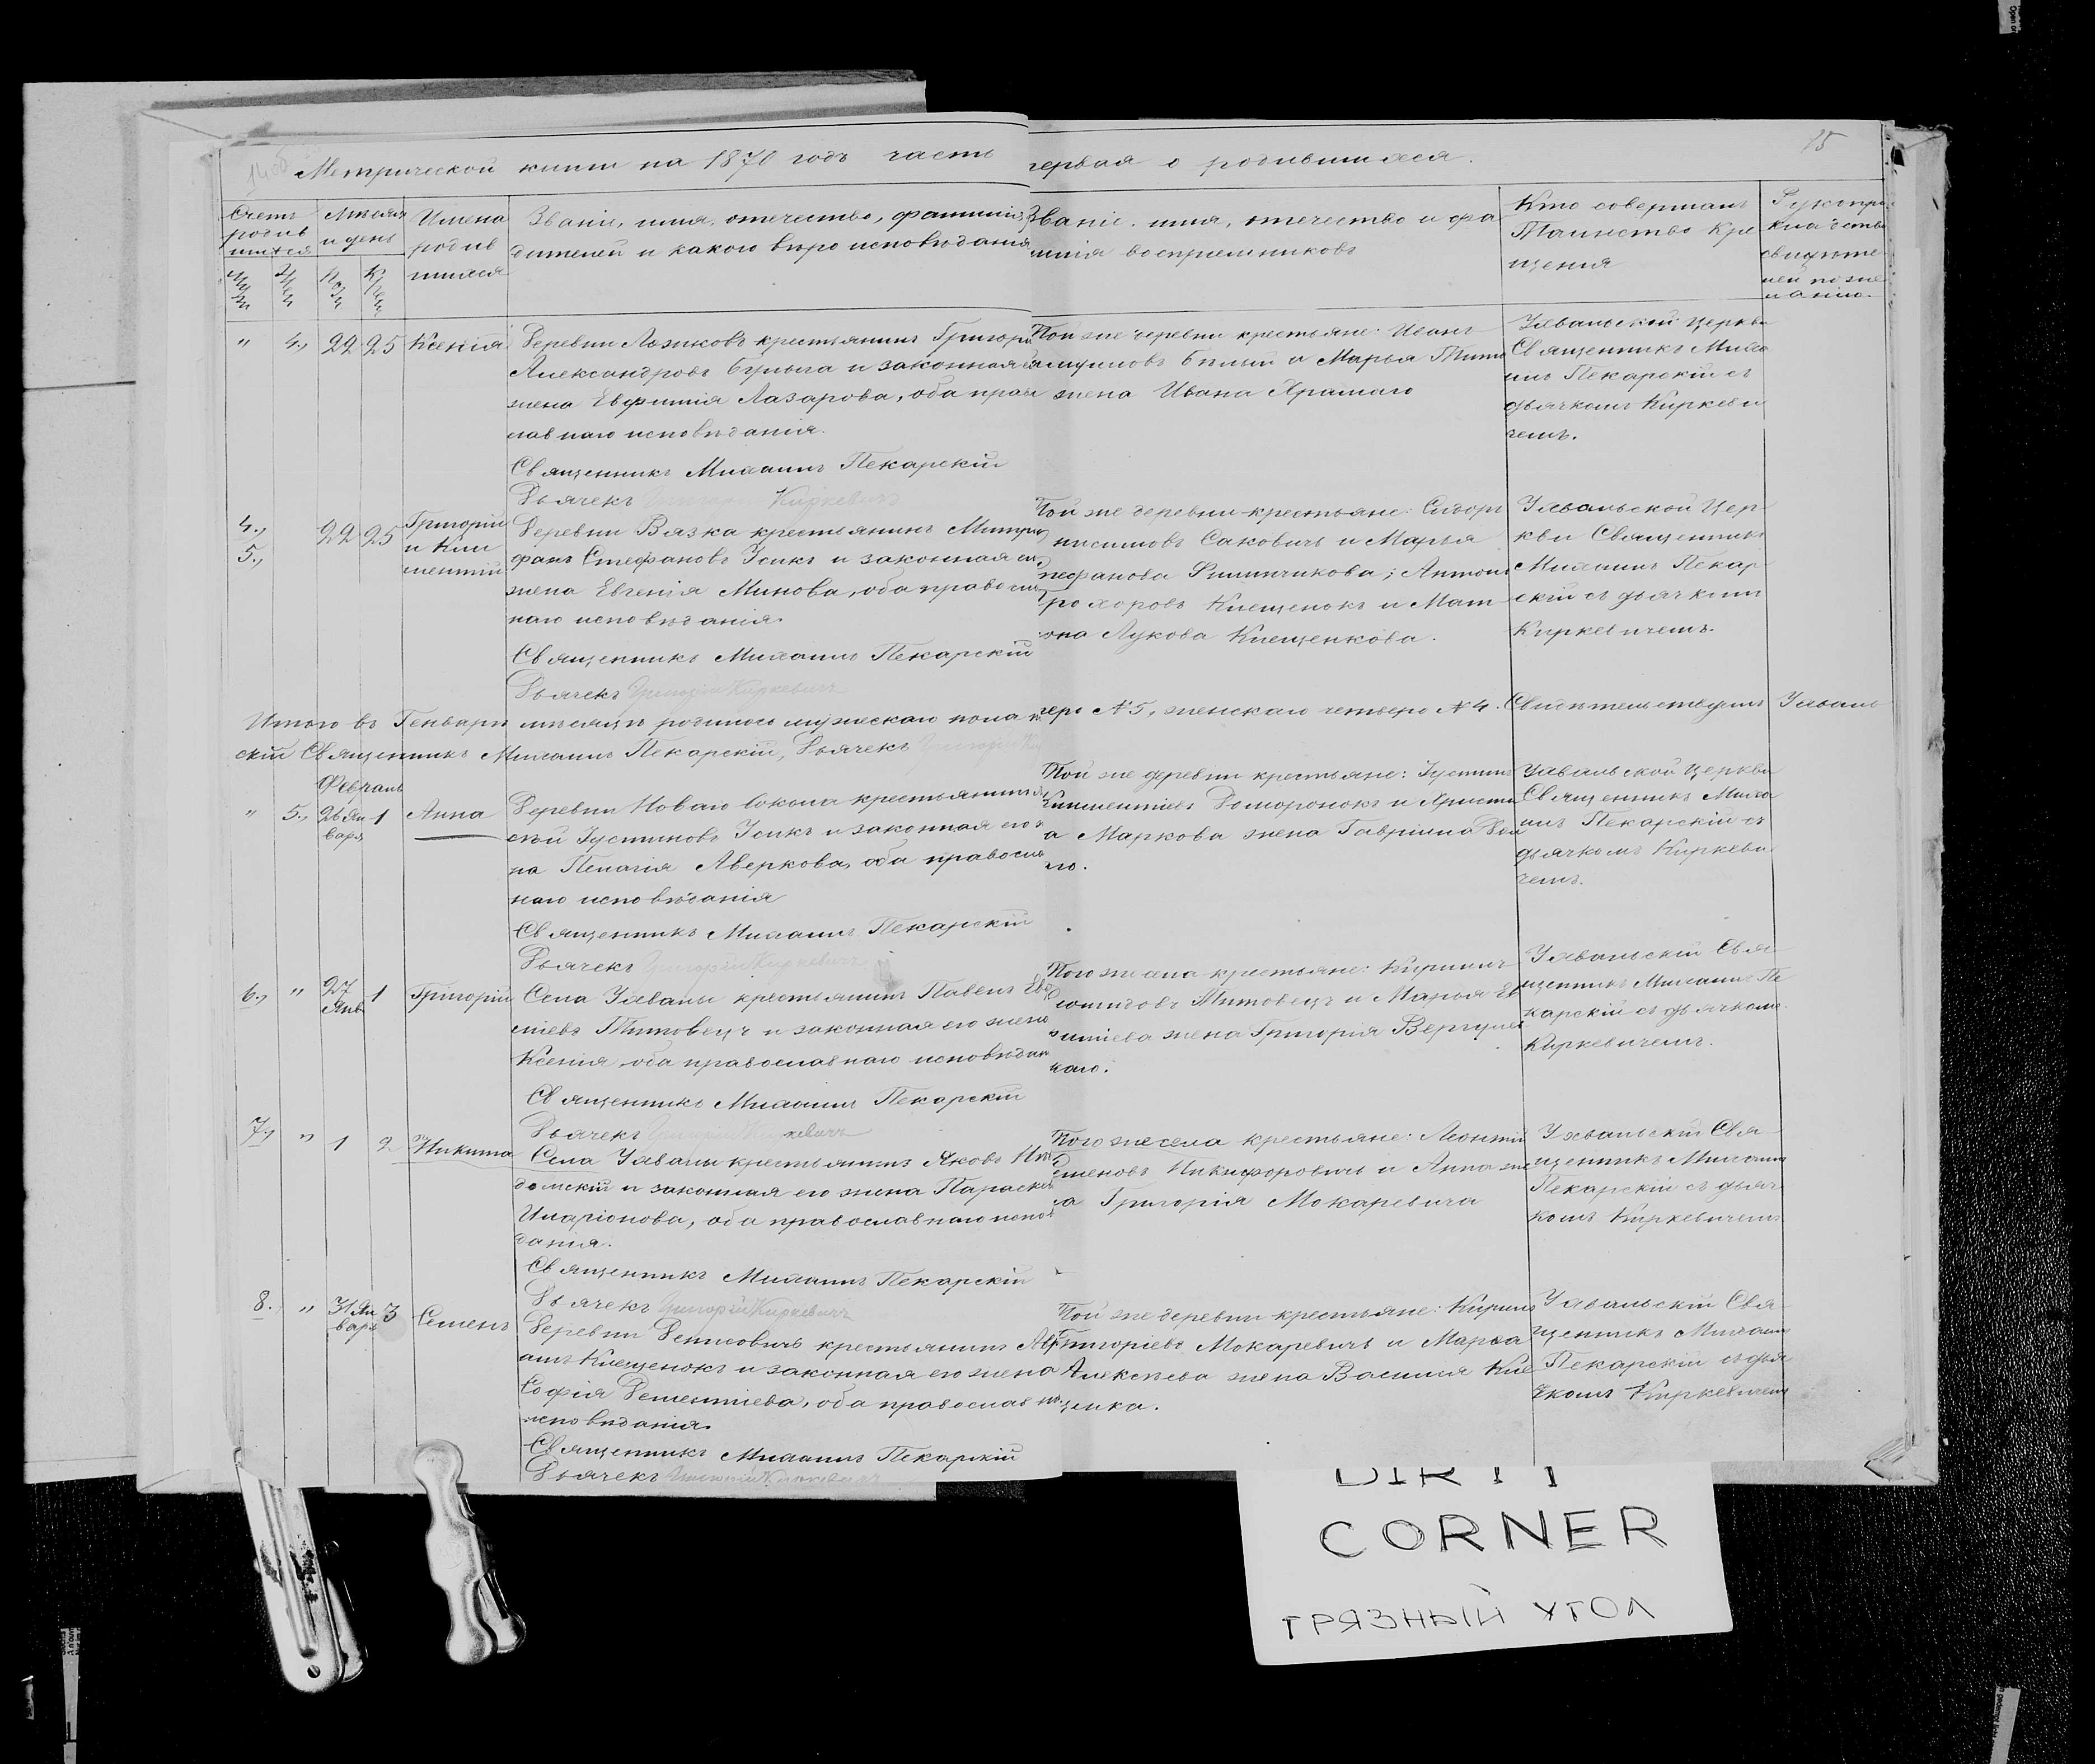 Метрической книги на 1870 годъ часть первая о родившихся.
15
Счетъ родив шихся
Месяцъ и день
Имена родив шихся
Званіе, имя, отечество, фамилія
дителей и какого вѣро исповѣданія
Званіе, имя, отечество и фа
милія воспріемниковъ
Кто совершалъ
Таинство Кре
щенія
Рукопри
кладство
свидѣте
лей по же
ланію.
" 4., 22 25 Ксенія
Деревни Лозиковъ крестьянинъ Григорій
Александровъ Булыга и законная
жена Евфимія Лазарова, оба право
славнаго исповѣданія.
Священникъ Михаилъ Пекарскій
Дьячекъ Григорій Киркевичъ
Той же деревни крестьяне: Иванъ
Бѣлый и Марья Тито
жена Ивана Храмаго
Уявальской церкви
Священникъ Миха
илъ Пекарскій съ
дьячкомъ Киркеви
чемъ.
4., 5., 22 25 Григорій и Кли ментій
Деревни Вязка крестьянинъ Митро
фанъ Стефановъ Усикъ и законная
жена Евгенія Минова, оба православ
наго исповѣданія.
Священникъ Михаилъ Пекарскій
Дьячекъ Григорій Киркевичъ
Той же деревни крестьяне: Сидоръ
Саковичъ и Марья
Стефанова Филинчикова; Антонъ
Прохоровъ Клещенокъ и Мат
рона Лукова Клещенкова.
Уявальской Цер
кви Священникъ
Михаилъ Пекар
скій съ дьячкомъ
Киркевичемъ.
Итого въ Генварѣ мѣсяцѣ родилось мужескаго пола
черо №5, женскаго четверо №4. Свидѣтельствуемъ Уяваль
скій Священникъ Михаилъ Пекарскій, Дьячекъ Григорій
Февраль
" 5., 26 Ян варя 1 Анна
Деревни Новаго Сокола крестьянинъ
сѣй Іустиновъ Усикъ и законная его
на Пелагія Аверкова, оба православ
наго исповѣданія
Священникъ Михаилъ Пекарскій
Дьячекъ Григорій Киркевичъ
Той же деревни крестьяне: Іустинъ
Климентіевъ Доморонокъ и Христи
а Маркова жена Гавріила
го.
Уявальской церкви
Священникъ Миха
илъ Пекарскій съ
дьячкомъ Киркеви
чемъ.
6., " 27 Янв 1 Григорій
Села Уявалы крестьянинъ Павелъ
Титовецъ и законная его жена
Ксенія, оба православнаго исповѣдан
Священникъ Михаилъ Пекарскій
Дьячекъ Григорій Киркевичъ
Того же села крестьяне: Кириллъ
Титовецъ и Марья Ев
жена Григорія
каго.
Уявальскій Свя
щенникъ Михаилъ Пе
карскій съ дьячкомъ
Киркевичемъ.
7., " 1 2 Никита
Села Уявалы крестьянинъ Яковъ
домскій и законная его жена Параскев
Иларіонова, оба православнаго исповѣ
данія.
Священникъ Михаилъ Пекарскій
Дьячекъ Григорій Киркевичъ
Того же села крестьяне: Леонтій
Семеновъ Никифоровичъ и Анна же
на Григорія Мокаревича
Уявальскій Свя
щенникъ Михаилъ
Пекарскій съ дьяч
комъ Киркевичемъ
8., " 31 Ян варя 3 Семенъ
Деревни Денисовичъ крестьянинъ
Клещенокъ и законная его жена
Софія Дементіева, оба православнаго
исповѣданія.
Священникъ Михаилъ Пекарскій
Дьячекъ Григорій Киркевичъ
Той же деревни крестьяне: Кирилъ
Григоріевъ Мокаревичъ и Марья
Алексѣева жена Василія Кле
щенка.
Уявальскій Свя
щенникъ Михаилъ
Пекарскій съ дья
чкомъ Киркевичемъ
DIRTY
CORNER
ГРЯЗНЫЙ УГОЛ